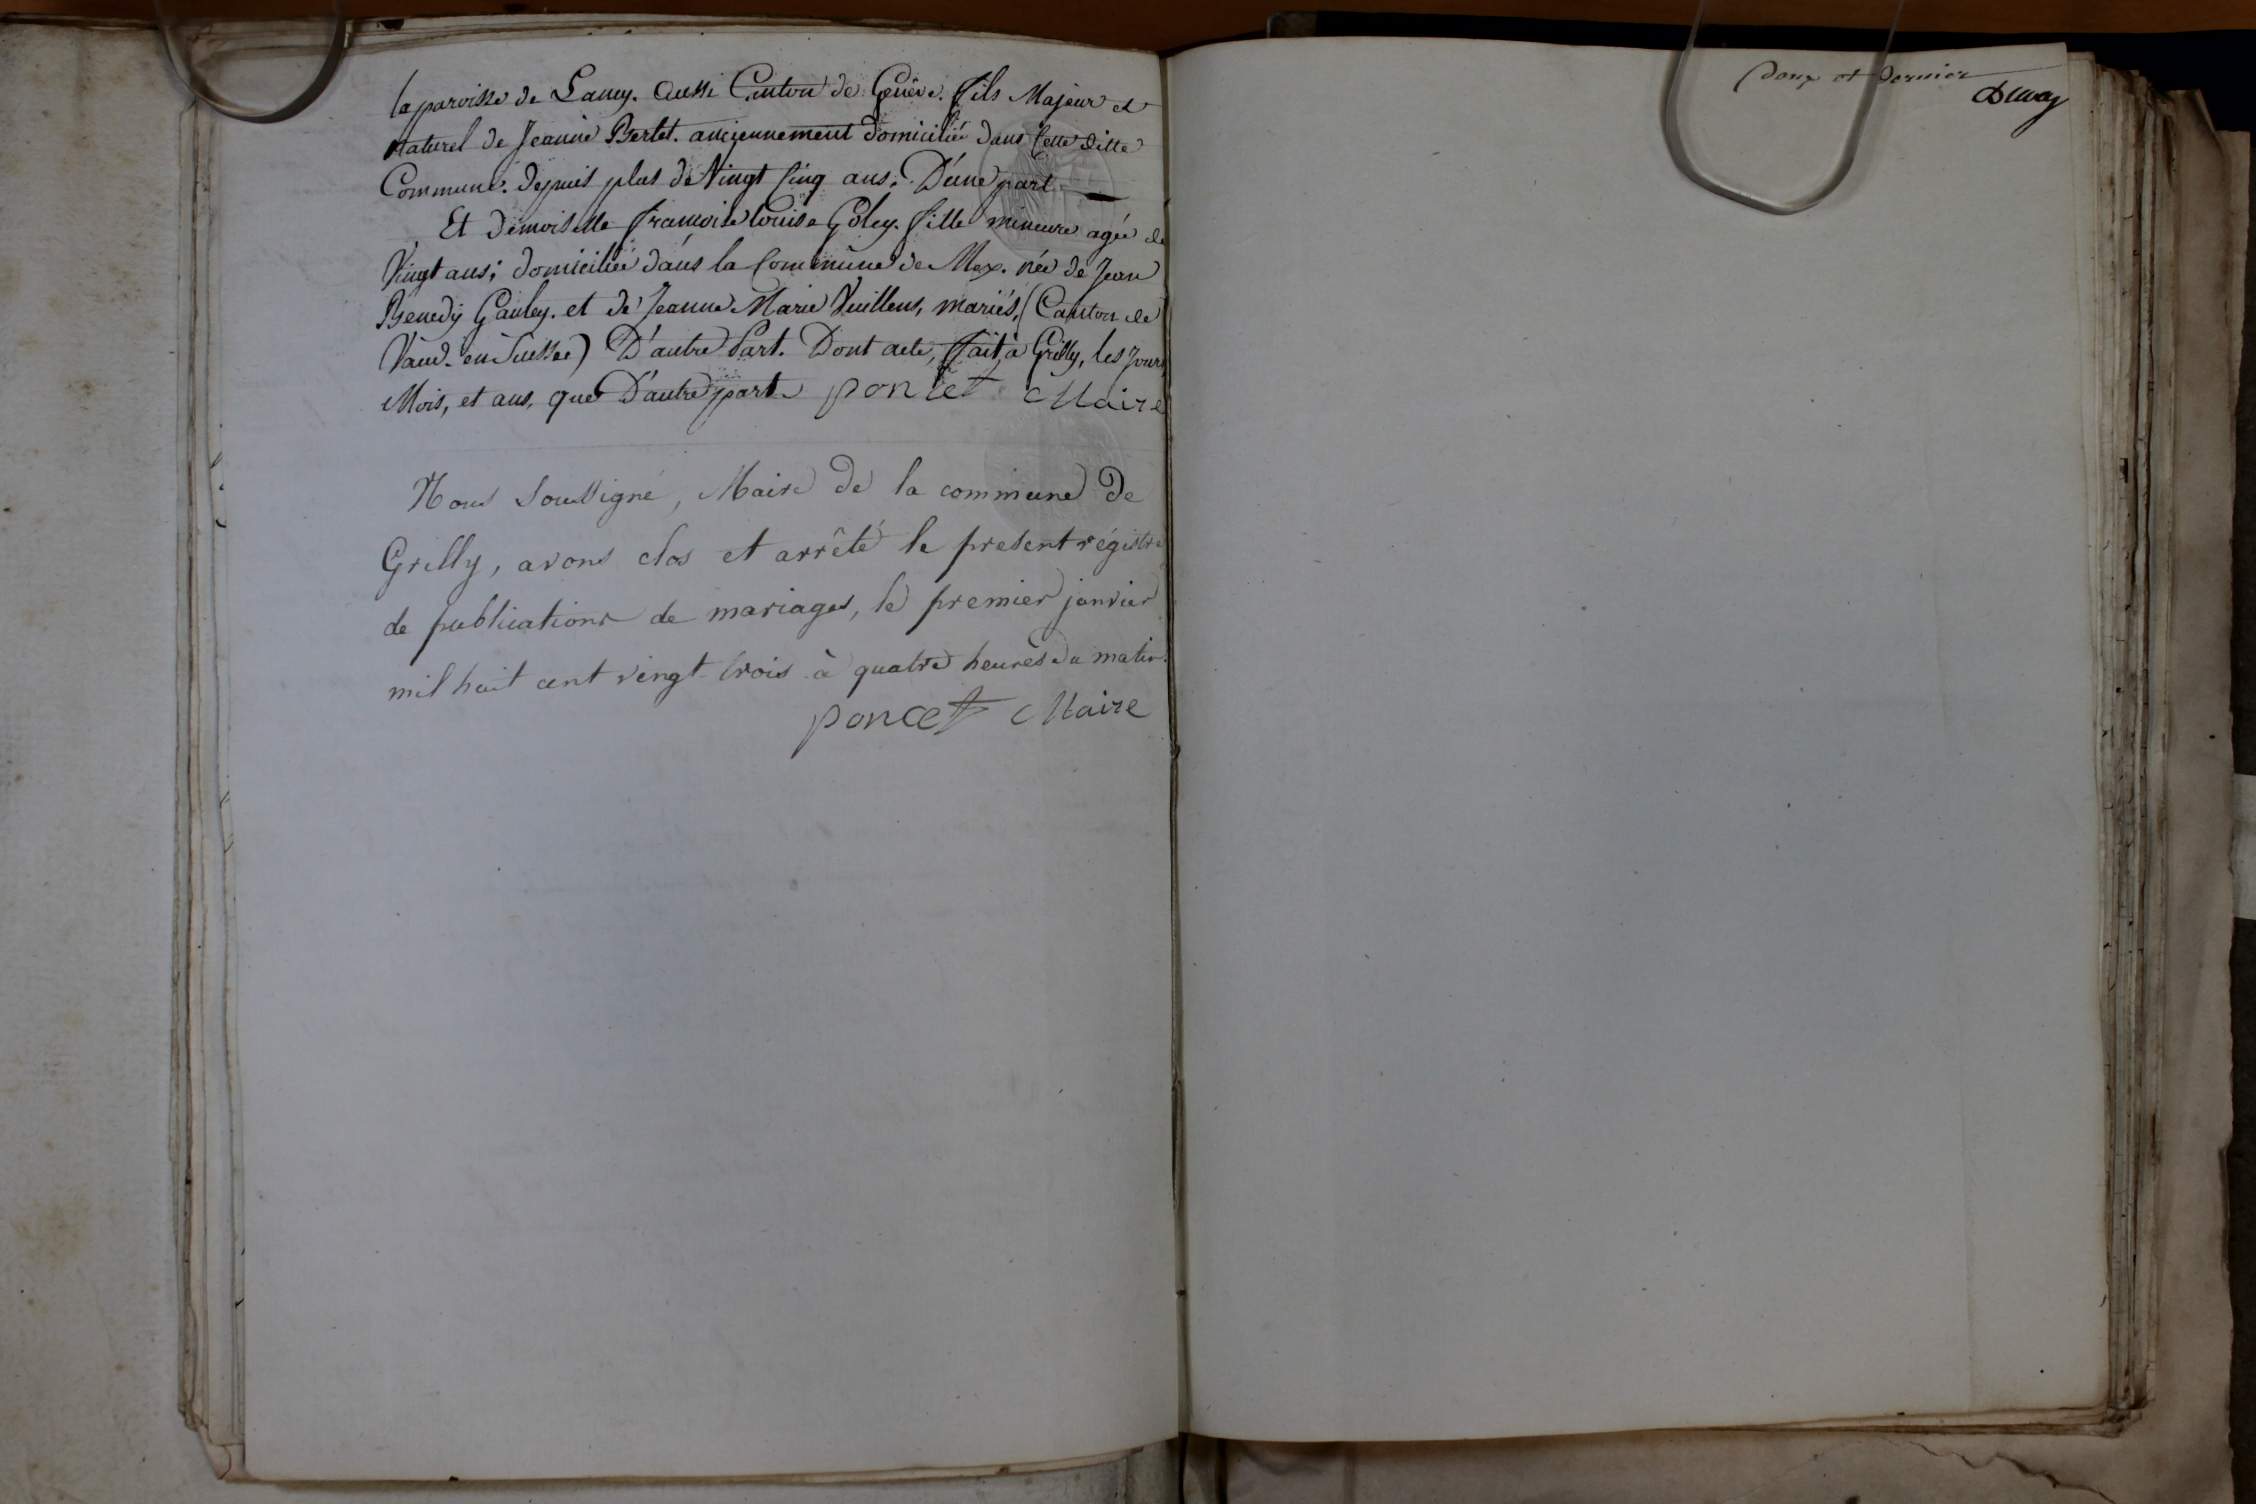 la paroisse de Lancy. Aussi Canton de Genêve. fils Majeur et
Naturel de Jeanne Bertet. anciennement domicilié dans Cette ditte
Commune. depuis plus de Vingt Cinq ans. D'une part
Et demoiselle françoise Louise Goley. fille mineure agée de
Vingt ans; domiciliée dans la Commune de Mex. née de Jean
Benedy Gauley. et de Jeanne Marie Vuillens, mariés, (Canton de
Vaud. en Suesse) D'autre Part. Dont acte, fait à Grilly, les jours
Mois, et ans, que D'autre part. poncet Maire
Nous Soussigné, Maire de la commune de
Grilly, avons clos et arrêté le present régistre
de publications de mariages, le premier janvier
mil huit cent vingt-trois à quatre heures du matin.
poncet Maire
Deux et dernier